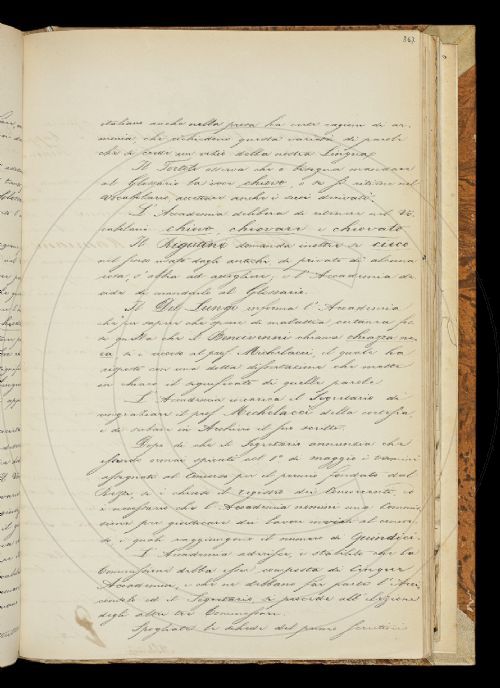 367
italiana anche nella prosa ha certe ragioni di ar-
monia che richiedono questa varietà di parole
che è certo un utile della nostra Lingua.
Il Tortoli osserva che o bisogna mandare
al Glossario la voce chiovo, o se si ritiene nel
Vocabolario, accettare anche i suoi derivati.
L'Accademia delibera di ritenere nel Vo-
cabolario chiovo, chiovare e chiovato
Il Rigutini domanda inoltre se cieco
nel senso usato dagli antichi di privato di alcuna
cosa, s'abbia ad accogliere, e l'Accademia de-
cide di mandarlo al Glossario.
Il Del Lungo informa l'Accademia
che per sapere che specie di malattia cutanea fos-
se quella che il Bencivenni chiama chiazza ne-
ra si è scritto al prof. Michelacci, il quale ha
risposto con una dotta dissertazione che mette
in chiaro il significato di quelle parole
L'Accademia incarica il Segretario di
ringraziare il prof. Michelacci della cortesia,
e di serbare in Archivio il suo scritto.
Dopo di che il Segretario annunzia che
essendo ormai spirati col 1º di maggio i termini
assegnati al Concorso per il premio fondato dal
si è chiuso il registro dei Concorrenti, ed
è necessario che l'Accademia nomini una Commis-
sione per giudicare dei lavori inviati al concor-
so, i quali raggiungono il numero di Quindici.
L'Accademia aderisce, e stabilito che la
Commissione debba esser composta di cinque
Accademici, e che ne debbano far parte l'Arci-
consolo ed il Segretario, si procede all'elezione
degli altri tre Commissari.
Spogliate le schede del primo scrutinio